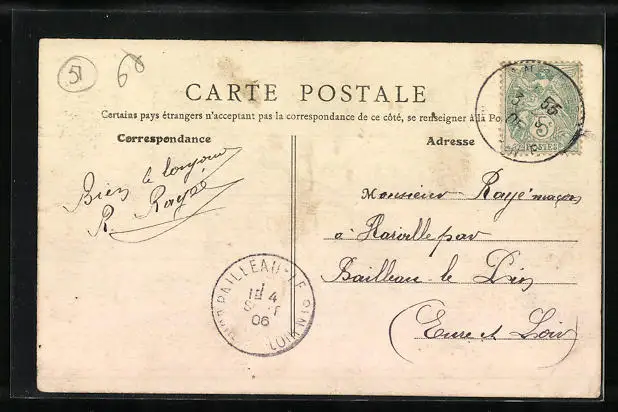 51
60
CARTE POSTALE
Certains pays étrangers n'acceptant pas la correspondance de ce côté, se renseigner à la Po
Correspondance
Adresse
Bien le bonjour
R. Rayé
Monsieur Rayé maçon
à Harville par
Bailleau le Pin
(Eure et Loir)
BAILLEAU-LE-PIN
1E
4
SEPT
06
LOIR
5
POSTES